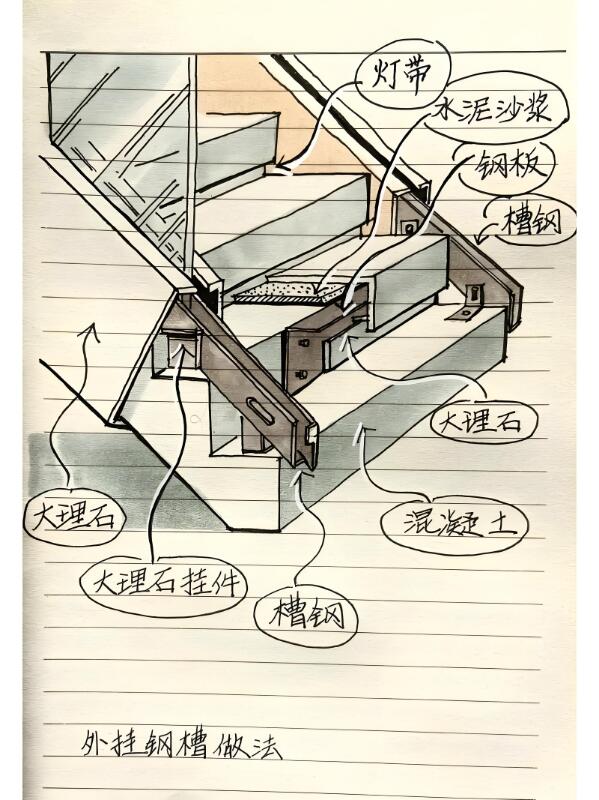 灯带
水泥沙浆
钢板
槽钢
大理石
大理石
混凝土
大理石挂件
槽钢
外挂钢槽做法